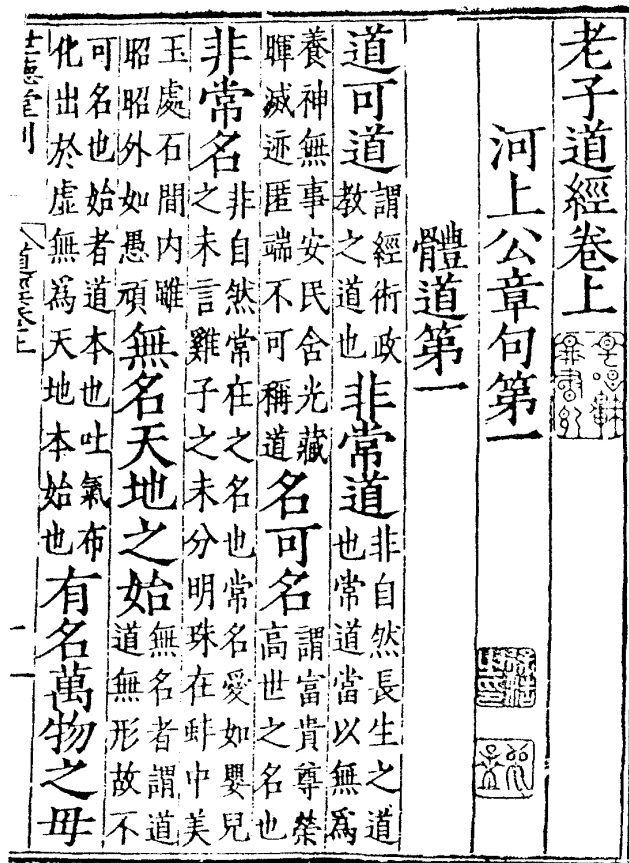 老子道經卷上
河上公章句第一
體道第一
道可道謂經術政教之道也非常道非自然長生之道也常道當以無爲
養神無事安民含光藏暉滅迹匿端不可稱道名可名謂富貴尊榮高世之名也
非常名非自然常在之名也常名愛如嬰兒之未言雞子之未分明珠在蚌中美
玉處石間內雖昭昭外如愚頑無名天地之始無名者謂道道無形故不
可名也始者道本也吐氣布化出於虛無爲天地本始也有名萬物之母
世德堂刊
道經卷上
一